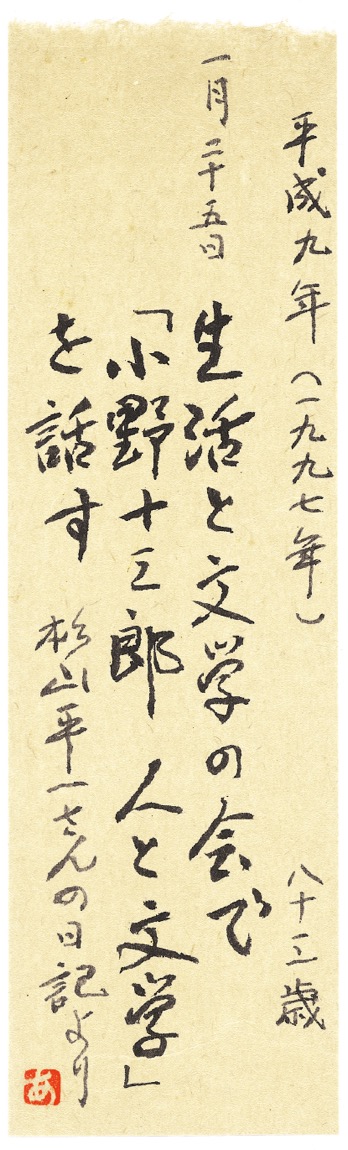 平成九年(一九九七年) 八十三歳
一月二十五日 生活と文学の会で
「小野十三郎 人と文学」
を話す 杉山平一さんの日記より